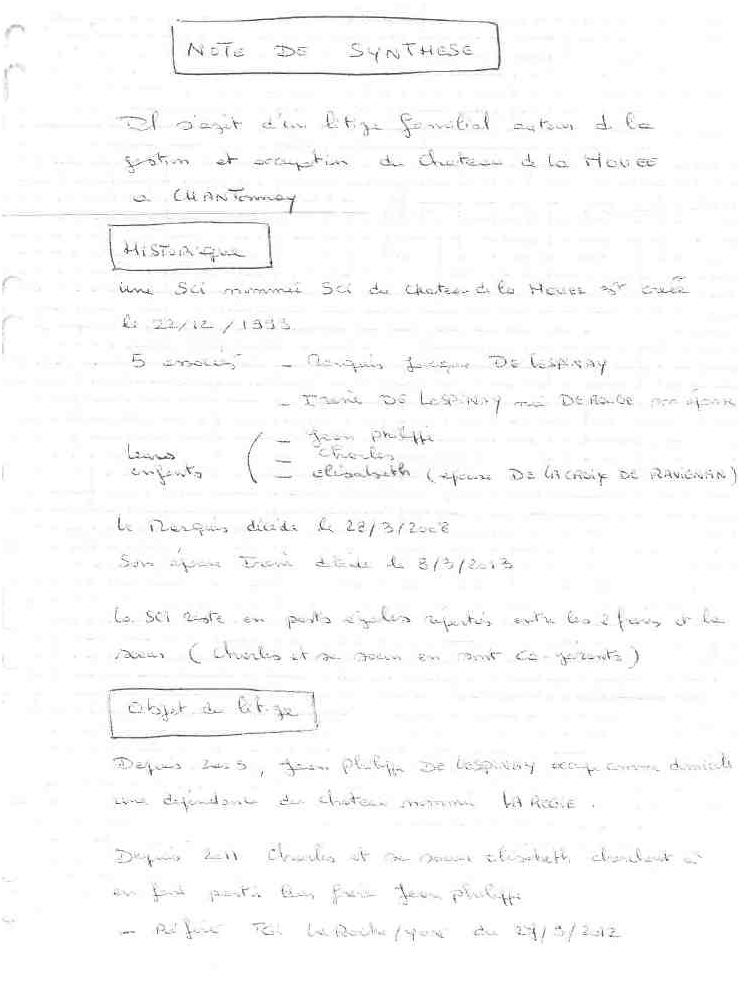 NOTE DE SYNTHESE
Il s'agit d'un litige familial autour de la
gestion et occupation du Chateau de la MOUEE
a CHANTONNAY
HISTORIQUE
une SCI nommée SCI du chateau de la MOUEE est créée
le 22/12/1993
5 associés - Marquis Jacques DE LESPINAY
- Irène DE LESPINAY née DE son épouse
leurs enfants ( - Jean philippe
- Charles
- elisabeth (épouse DE LACROIX DE RAVIGNAN)
le Marquis décède le 28/3/2008
Son épouse Irène décède le 8/3/2013
La SCI reste en parts égales réparties entre les 2 frères et la
soeur (Charles et sa soeur en sont co-gérants)
Objet du litige
Depuis 2005, Jean philippe DE LESPINAY occupe comme domicile
une dépendance du chateau nommée LA REGIE.
Depuis 2011 Charles et sa soeur elisabeth cherchent à
en faire partir leur frère Jean philippe
- Référé TGI LaRoche/yon du 27/9/2012